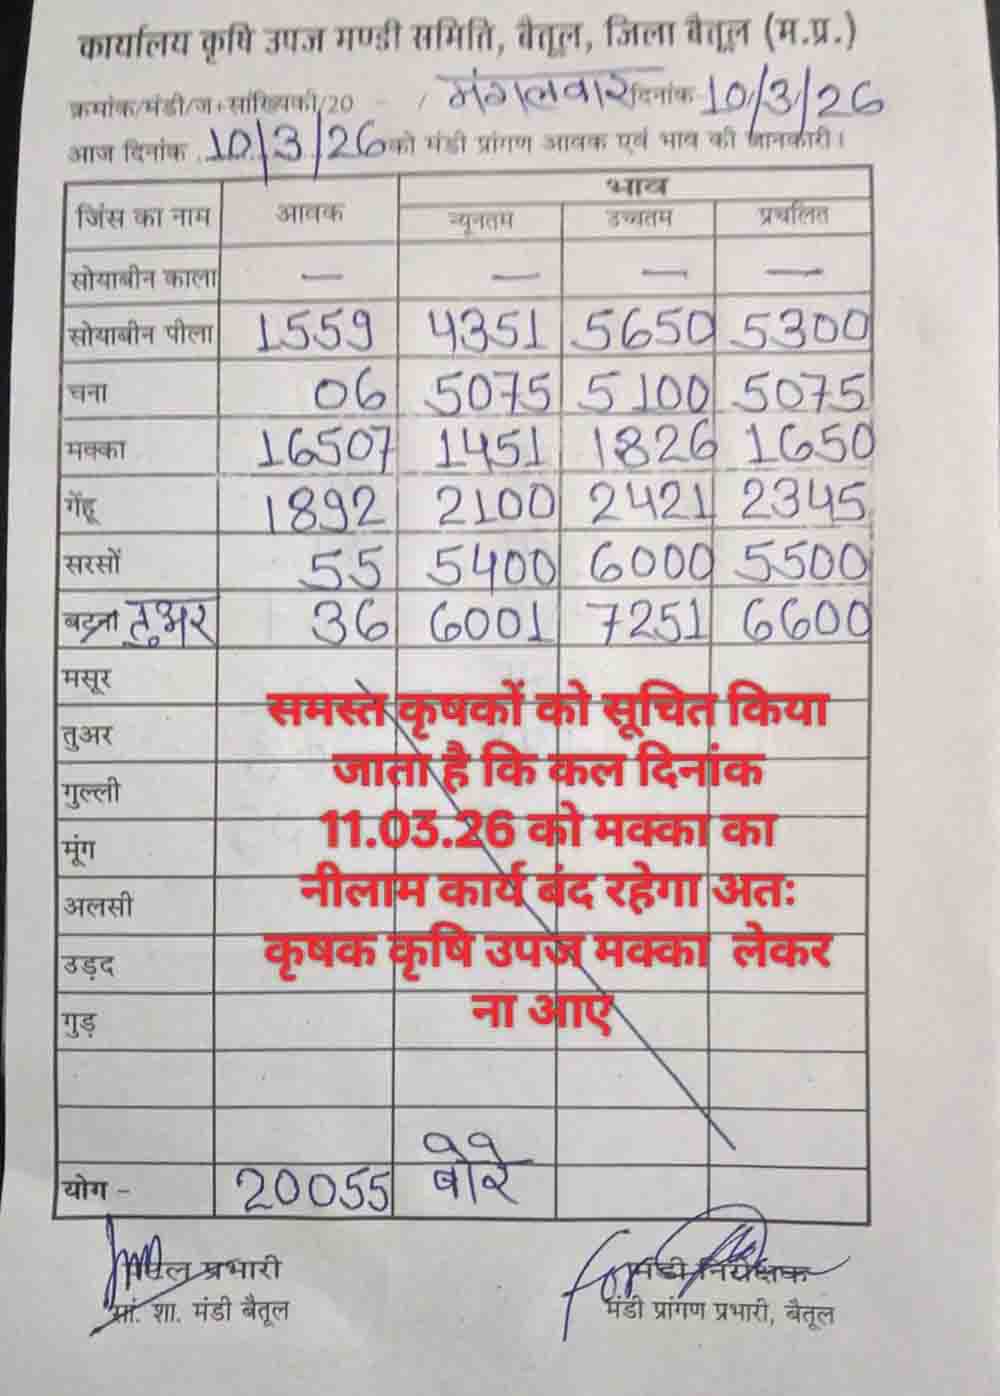 कार्यालय कृषि उपज मण्डी समिति, बैतूल, जिला बैतूल (म.प्र.)
क्रमांक/मंडी/ज+सांख्यिकी/20 - / मंगलवार दिनांक 10/3/26
आज दिनांक 10/3/26 को मंडी प्रांगण आवक एवं भाव की जानकारी।
जिंस का नाम आवक भाव
न्यूनतम उच्चतम प्रचलित
सोयाबीन काला — — — —
सोयाबीन पीला 1559 4351 5650 5300
चना 06 5075 5100 5075
मक्का 16507 1451 1826 1650
गेंहू 1892 2100 2421 2345
सरसों 55 5400 6000 5500
बटना तुअर 36 6001 7251 6600
मसूर
तुअर
गुल्ली
मूंग
अलसी
उड़द
गुड़
समस्त कृषकों को सूचित किया
जाता है कि कल दिनांक
11.03.26 को मक्का का
नीलाम कार्य बंद रहेगा अतः
कृषक कृषि उपज मक्का लेकर
ना आए
योग - 20055 बोरे
प्रभारी
सां. शा. मंडी बैतूल
मंडी निरीक्षक
मंडी प्रांगण प्रभारी, बैतूल